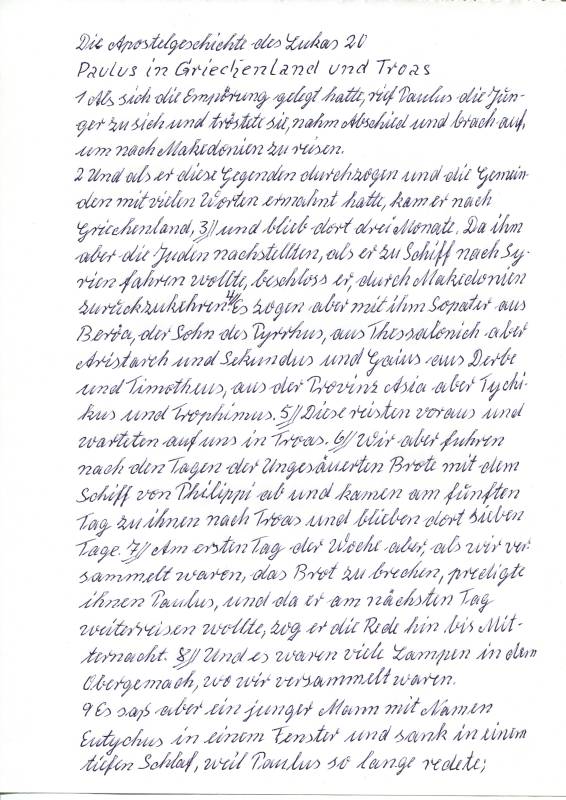 Die Apostelgeschichte des Lukas 20
Paulus in Griechenland und Troas
1 Als sich die Empörung gelegt hatte, rief Paulus die Jün-
ger zu sich und tröstete sie, nahm Abschied und brach auf,
um nach Makedonien zu reisen.
2 Und als er diese Gegenden durchzogen und die Gemein-
den mit vielen Worten ermahnt hatte, kam er nach
Griechenland, 3// und blieb dort drei Monate. Da ihm
aber die Juden nachstellten, als er zu Schiff nach Sy-
rien fahren wollte, beschloss er, durch Makedonien
zurückzukehren. 4// Es zogen aber mit ihm Sopater aus
Beröa, der Sohn des Pyrrhus, aus Thessalonich aber
Aristarch und Sekundus und Gaius aus Derbe
und Timotheus, aus der Provinz Asia aber Tychi-
kus und Trophimus. 5// Diese reisten voraus und
warteten auf uns in Troas. 6// Wir aber fuhren
nach den Tagen der Ungesäuerten Brote mit dem
Schiff von Philippi ab und kamen am fünften
Tag zu ihnen nach Troas und blieben dort sieben
Tage. 7// Am ersten Tag der Woche aber, als wir ver-
sammelt waren, das Brot zu brechen, predigte
ihnen Paulus, und da er am nächsten Tag
weiterreisen wollte, zog er die Rede hin bis Mit-
ternacht. 8// Und es waren viele Lampen in dem
Obergemach, wo wir versammelt waren.
9 Es saß aber ein junger Mann mit Namen
Eutychus in einem Fenster und sank in einem
tiefen Schlaf, weil Paulus so lange redete;